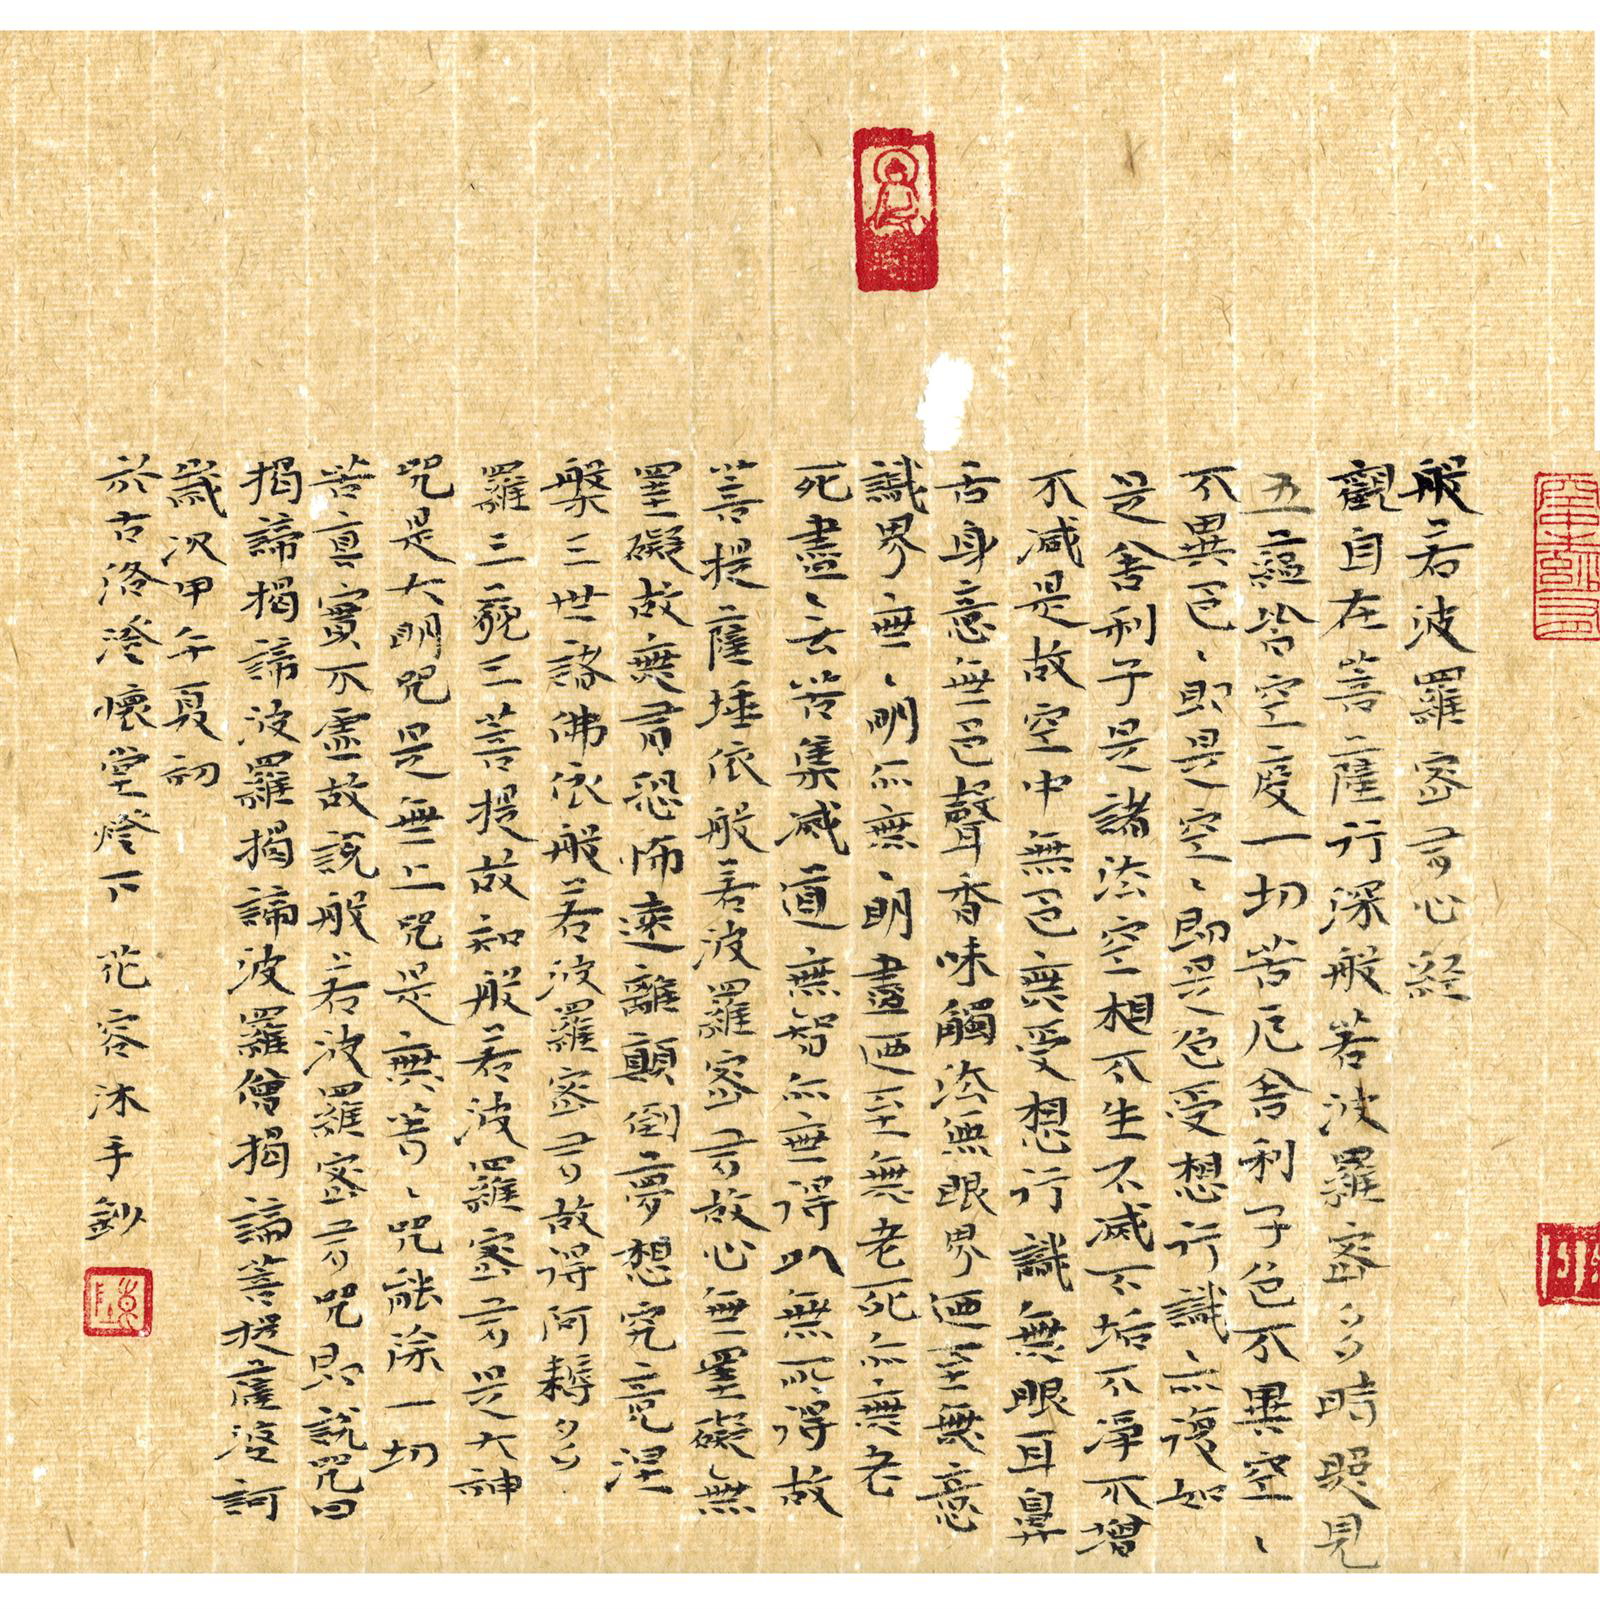 般若波羅密多心經
觀自在菩薩行深般若波羅密多時照見
五蘊皆空度一切苦厄舍利子色不異空、
不異色、即是空、即是色受想行識亦復如
是舍利子是諸法空相不生不滅不垢不淨不增
不減是故空中無色無受想行識無眼耳鼻
舌身意無色聲香味觸法無眼界迺至無意
識界無、明亦無、明盡迺至無老死亦無老
死盡、無苦集滅道無智亦無得以無所得故
菩提薩埵依般若波羅密多故心無罣礙、無
罣礙故無有恐怖遠離顛倒夢想究竟涅
槃三世諸佛依般若波羅密多故得阿耨多
羅三藐三菩提故知般若波羅密多是大神
咒是大明咒是無上咒是無等、咒能除一切
苦真實不虛故說般若波羅密多咒即說咒曰
揭諦揭諦波羅揭諦波羅僧揭諦菩提薩婆訶
歲次甲午夏初
於古洛澄懷堂燈下 花容沐手鈔